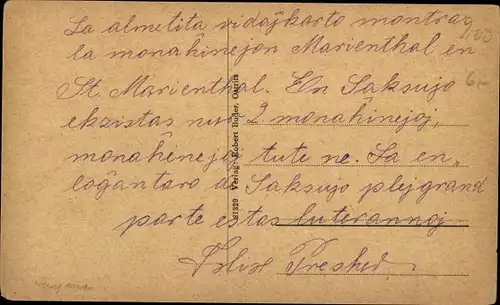 La almetita vidaĵkarto montras
la monaĥinejon Marienthal en
St. Marienthal. En Saksujo
ekzistas nur 2 monaĥinejoj,
monaĥenejo tute ne. La en-
loĝantaro de Saksujo plejgrand
parte estas luterannoj
Felix
81329 Verlag: Robert Boßer,